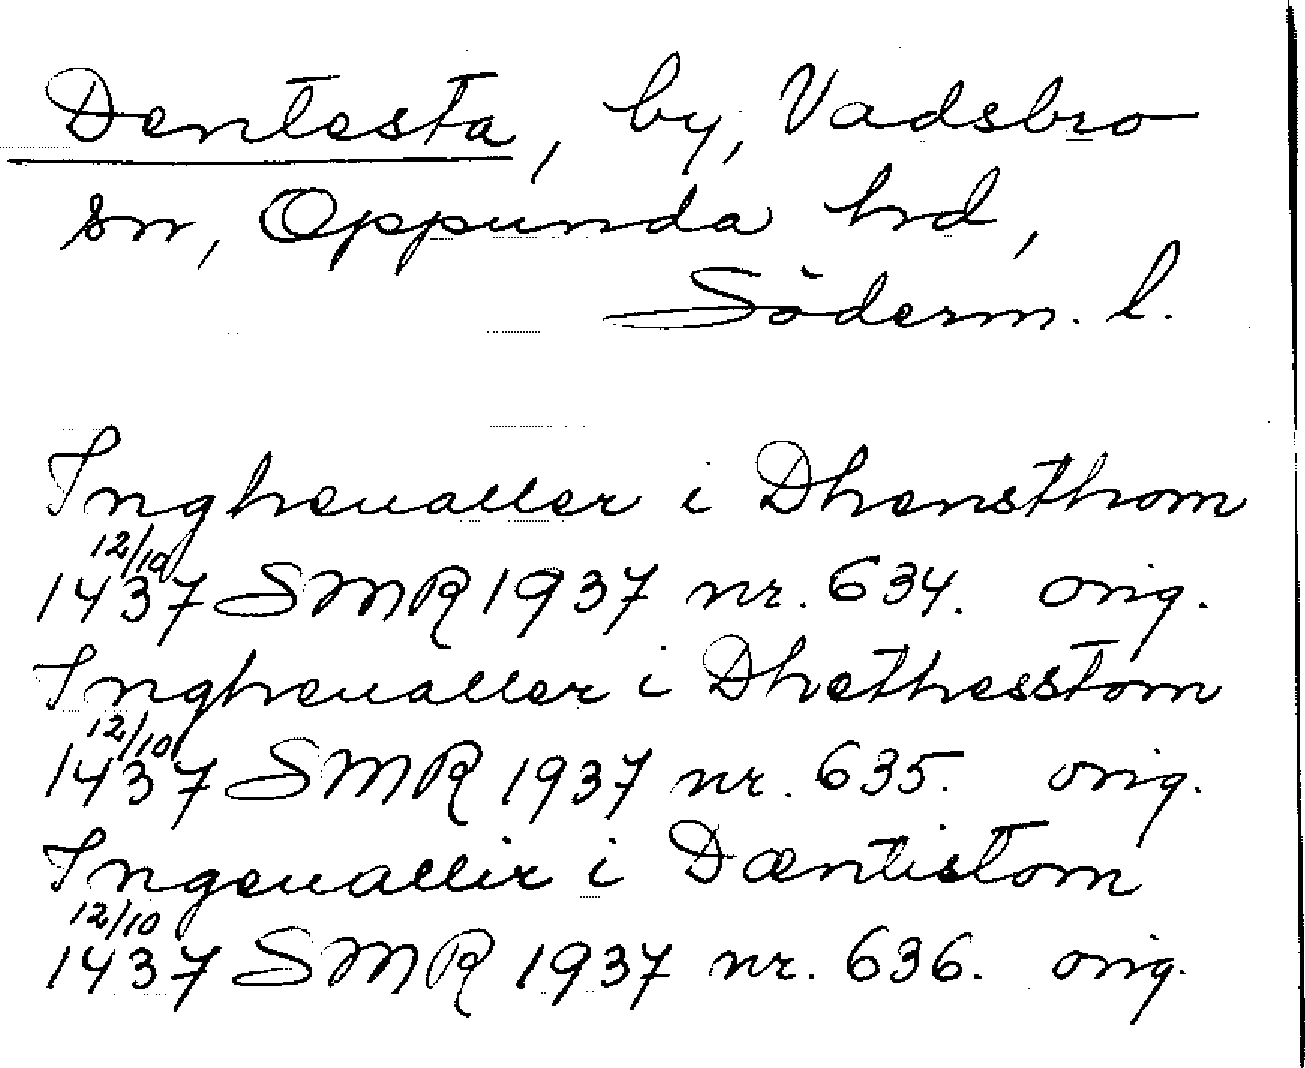 Dentesta, by, Vadsbro
sn, Oppunda hrd,
Söderm. l.
Ingheualler i Dhensthom
12/10
1437 SMR 1937 nr. 634. orig.
Ingheualler i Dhethesstom
12/10
1437 SMR 1937 nr. 635. orig.
Ingeuallir i Dæntistom
12/10
1437 SMR 1937 nr. 636. orig.